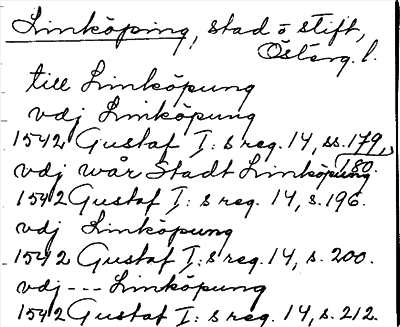 Linköping, stad o stift,
Österg. l.
till Linköpung
vdj Linköpung
1542 Gustaf I:s reg. 14, ss. 179,
180.
vdj wår Stadt Linköpung
1542 Gustaf I:s reg. 14, s. 196.
vdj Linköpung
1542 Gustaf I:s reg. 14, s. 200.
vdj --- Linköpung
1542 Gustaf I:s reg. 14, s. 212.